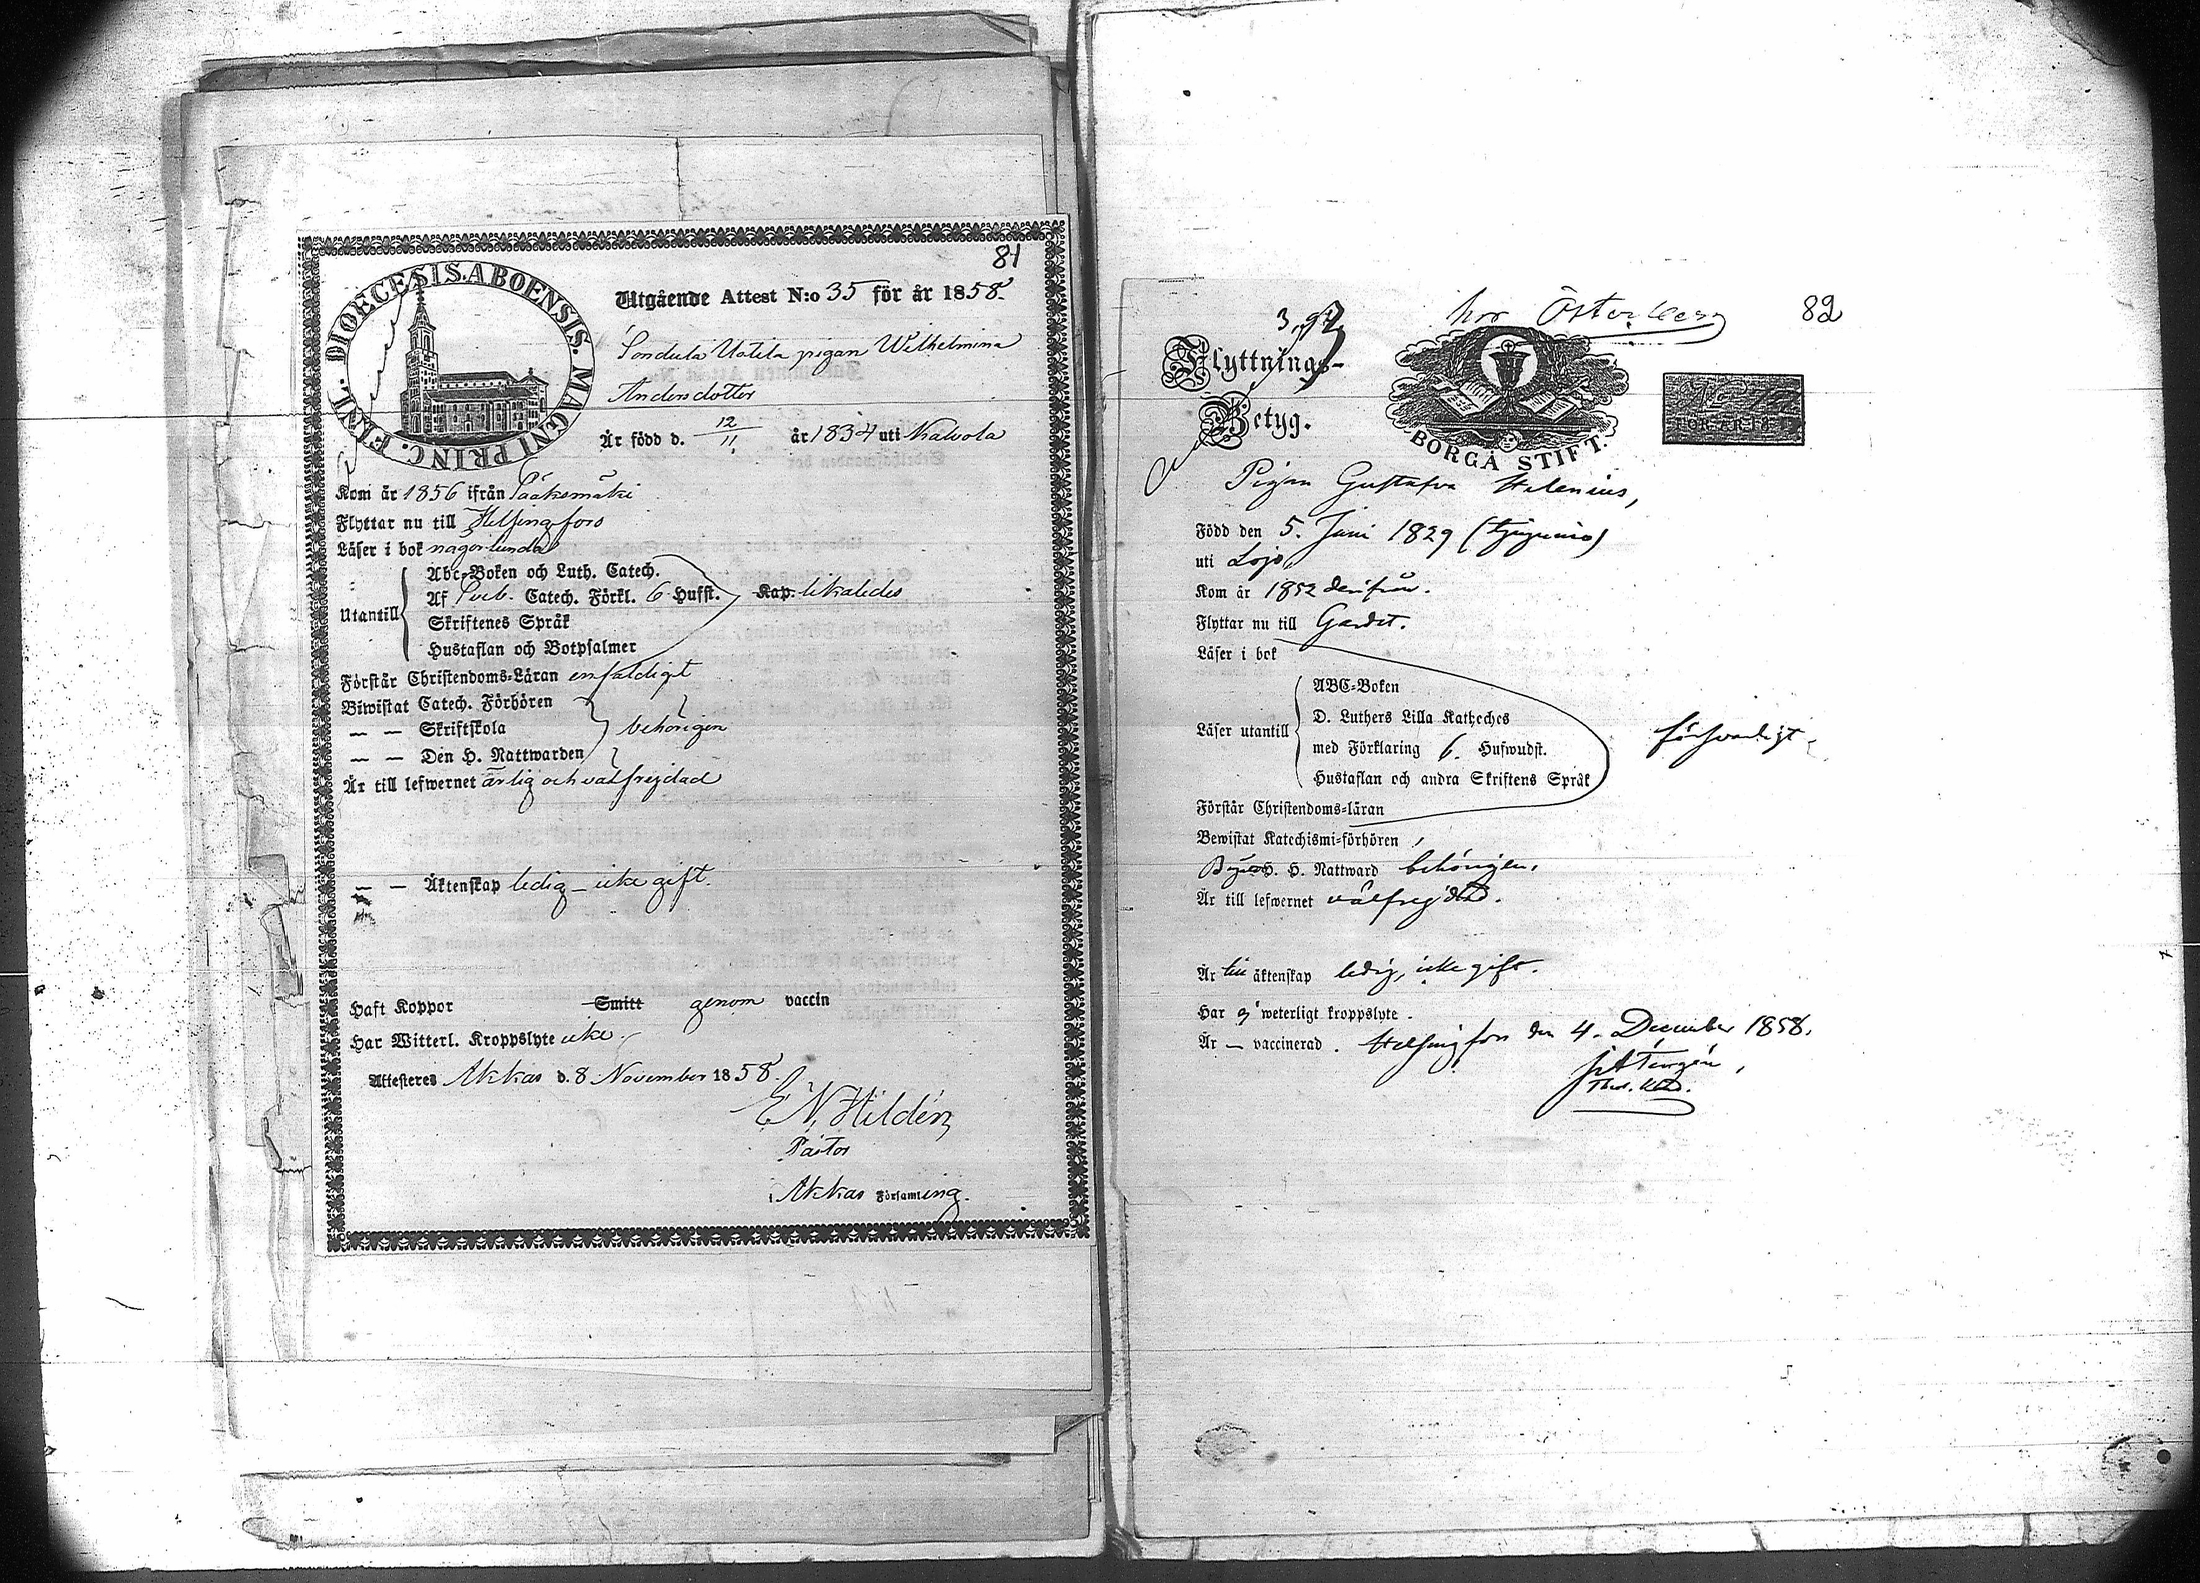 81
DIOECESIS. ABOENSIS. MAGNI PRINC. FINL.
Utgående Attest N:o 35 för år 1858.
Uotila pigan Wilhelmina
Andersdotter
Är född d. 12/11 år 1834 uti Kalvola
Kom år 1856 ifrån Sääksmäki
Flyttar nu till Helsingfors
Läser i bok någorlunda
Utantill
Abc-Boken och Luth. Catech.
Af Sveb. Catech. Förkl. 6 Hufst. Kap. likaledes
Skriftenes Språk
Hustaflan och Botpsalmer
Förstår Christendoms-Läran enfaldigt
Biwistat Catech. Förhören
— — Skriftskola behörigen
— — Den H. Nattwarden
Är till lefwernet ärlig och välfrejdad
— — Äktenskap ledig – icke gift.
Haft Koppor Smitt genom vaccin
Har Witterl. Kroppslyte icke.
Attesteras Akkas d. 8 November 1858.
E N Hildén
Pastor
i Akkas Församling.
hos Österberg
82
Flyttnings-
Betyg.
BORGÅ STIFT.
FÖR ÅR 18
Pigan Gustafva Helenius,
Född den 5. Juni 1829
uti Lojo,
Kom år 1852 derifrån.
Flyttar nu till Gardet.
Läser i bok
Läser utantill
ABC-Boken
D. Luthers Lilla Katheches
med Förklaring 6. Hufwudst.
Hustaflan och andra Skriftens Språk
försvarligt
Förstår Christendoms-läran
Bewistat Katechismi-förhören
H. Nattward behörigen.
Är till lefwernet välfrejdad.
Är till äktenskap ledig, icke gift.
Har ej weterligt kroppslyte.
Är — vaccinerad. Helsingfors den 4. December 1858.